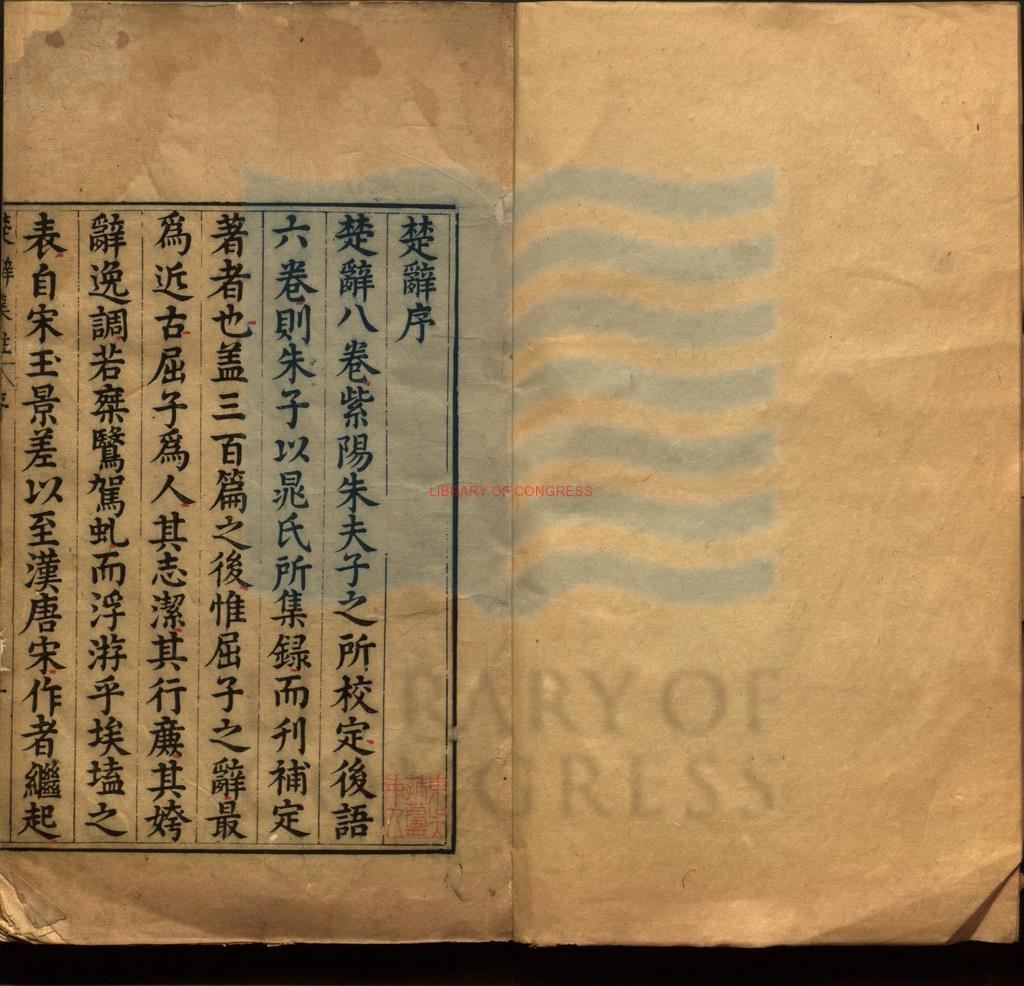 楚辭序
楚辭八卷紫陽朱夫子之所校定後語
六卷則朱子以晁氏所集録而刊補定
著者也盖三百篇之後惟屈子之辭最
爲近古屈子爲人其志潔其行亷其姱
辭逸調若椉鷖駕虬而浮游乎埃壒之
表自宋玉景差以至漢唐宋作者繼起
LIBRARY OF CONGRESS
RARY OF
GRESS